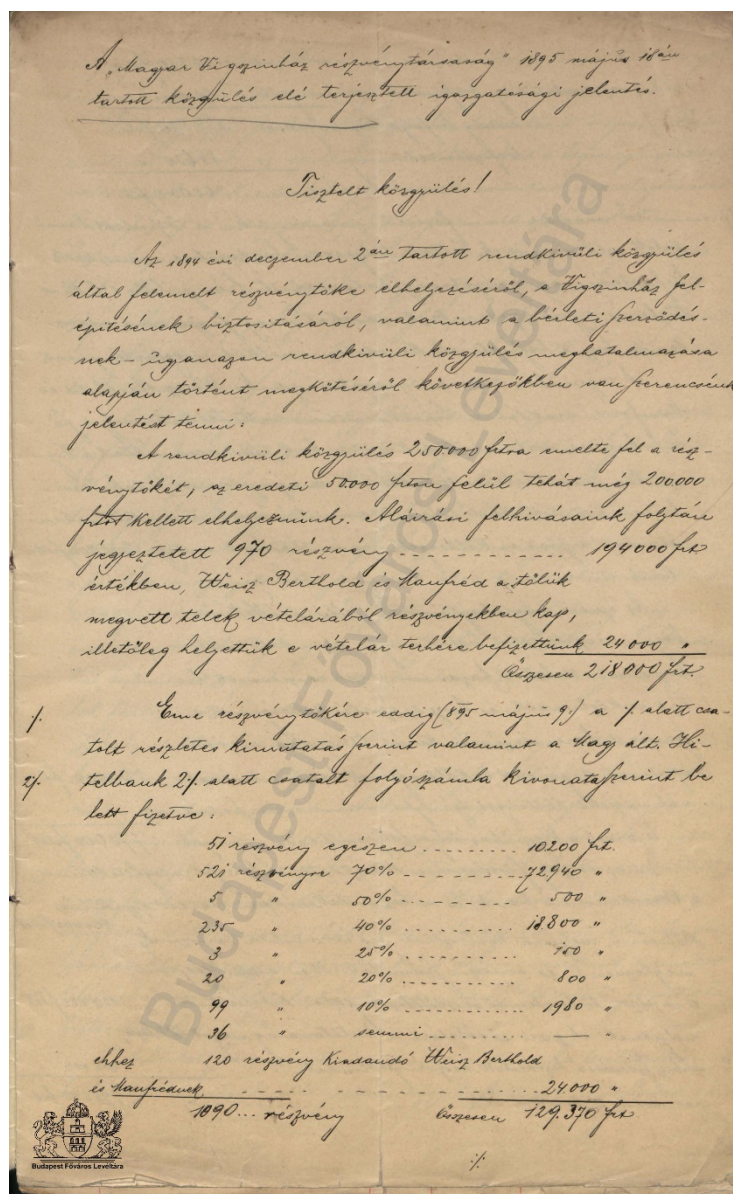 A „Magyar Vigszinház részvénytársaság" 1895 május 18án
tartott közgyülés elé terjesztett igazgatósági jelentés.
Tisztelt közgyülés!
Az 1894 évi deczember 2án tartott rendkivüli közgyülés
által felemelt részvénytőke elhelyezéséről, a Vigszinház fel-
épitésének biztositásáról, valamint a bérleti szerződés-
nek – ugyanazon rendkivüli közgyülés meghatalmazása
alapján történt megkötéséről következőkben van szerencsénk
jelentést tenni:
A rendkivüli közgyülés 250.000 frtra emelte fel a rész-
vénytőkét, az eredeti 50.000 frton felül tehát még 200000
frtot kellett elhelyeznünk. Aláirási felhivásaink folytán
jegyeztetett 970 részvény ............ 194000 frt
értékben, Weisz Berthold és Manfréd a tőlük
megvett telek vételárából részvényekben kap,
illetőleg helyettük e vételár terhére befizettünk 24000 "
Összesen 218000 frt.
·/. Eme részvénytőkére eddig (895 május 9.) a ·/. alatt csa-
tolt részletes kimutatás szerint valamint a Magy. ált. Hi-
2/. telbank 2·/. alatt csatalt folyószámla kivonata szerint be
lett fizetve:
51 részvény egészen ........ 10200 frt.
521 részvényre 70% ......... 72.940 "
5 " 50% ......... 500 "
235 " 40% ......... 18.800 "
3 " 25% ......... 150 "
20 " 20% ......... 800 "
99 " 10% ......... 1980 "
36 " semmi ......... — "
ehhez 120 részvény kiadandó Weisz Berthold
és Manfrédnek ......... 24000 "
1090... részvény Összesen 129.370 frt
·/.
Budapest Főváros Levéltára
Budapest Főváros Levéltára